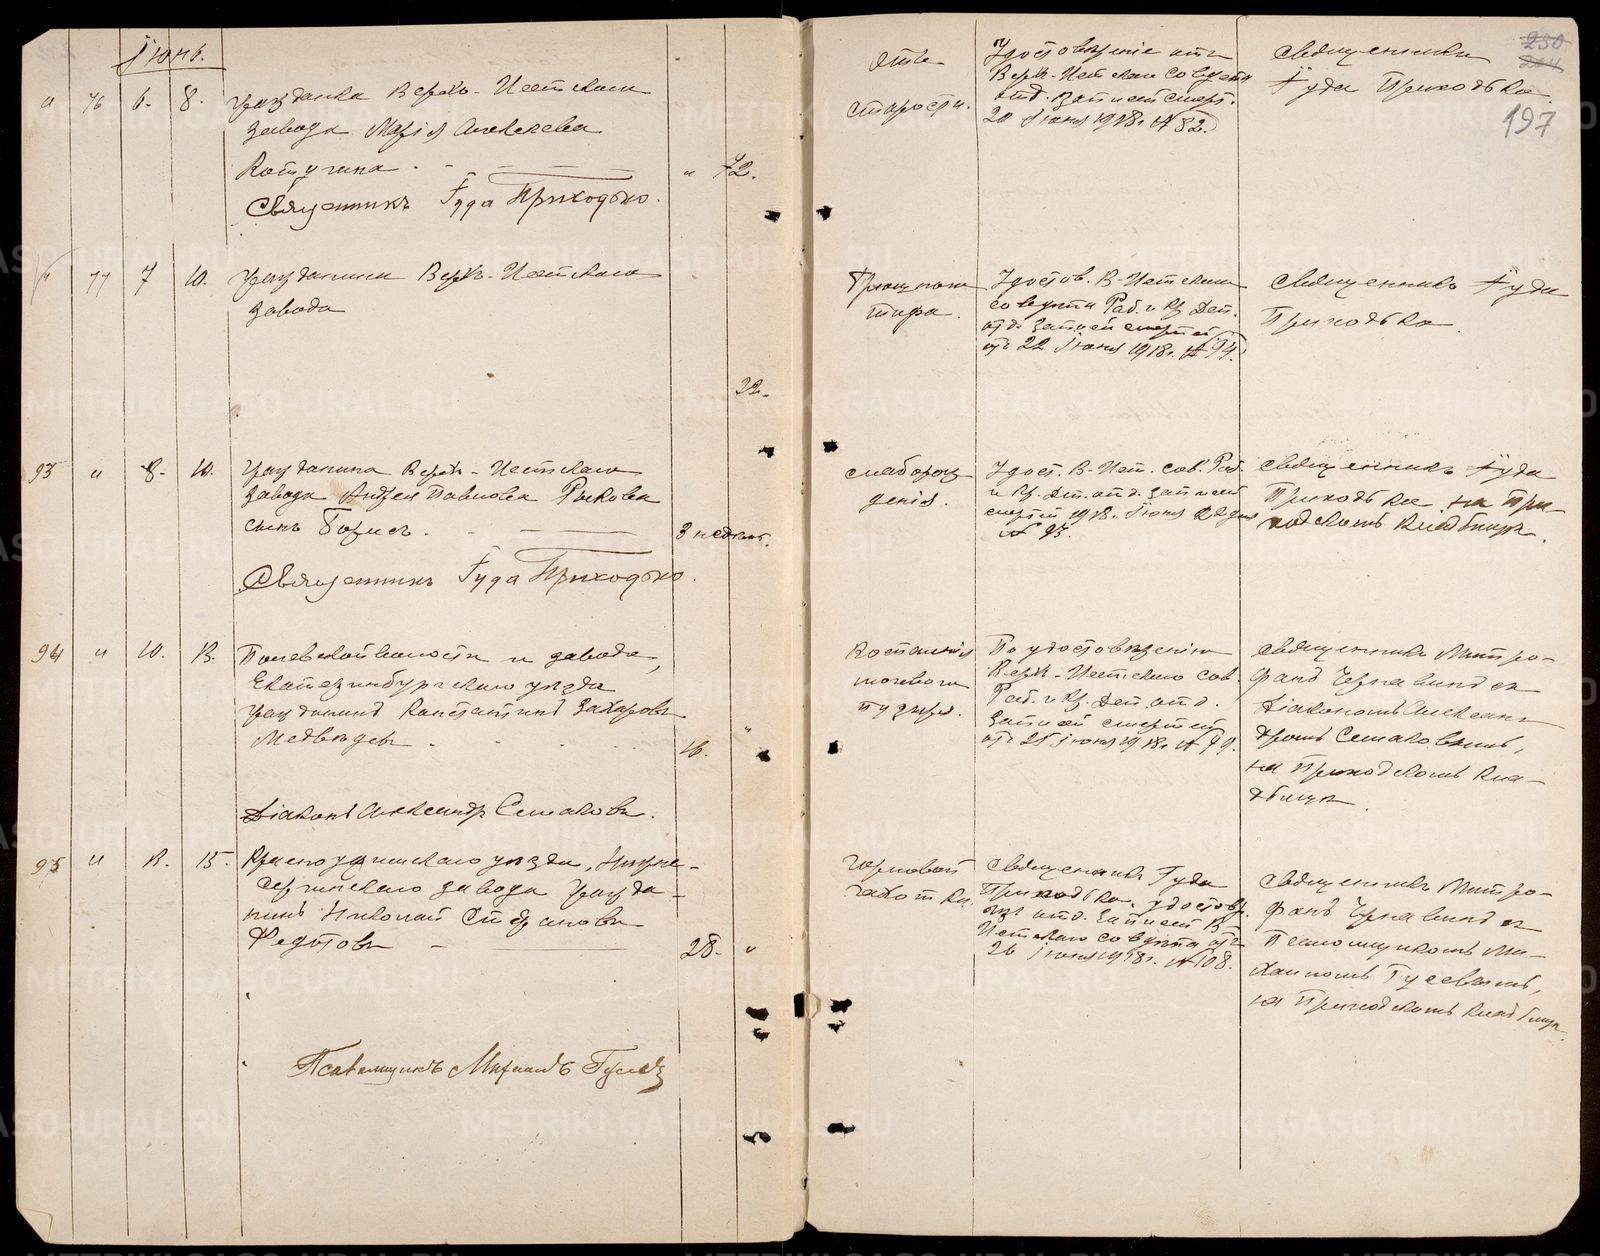 Іюнь.
" 76 6. 8. Гражданка Верхъ-Исетскаго
завода Марія Алексѣева
72.
Священникъ Іуда Приходько.
отъ
старости.
Удостовѣреніе отъ
Верх-Исетскаго совѣта
отд. записей смерт.
20 Іюня 1918г. № 82.
Священникъ
Іуда Приходько
250
204
197
" 77 7 10. Гражданина Верхъ-Исетскаго
завода
22.
Брюшного
тифа.
Удостов. В-Исетскаго
совѣта Раб. и Кр. Деп.
отд. записей смертей
отъ 22 Іюня 1918г. № 94.
Священникъ Іуда
Приходько.
93 " 8. 10. Гражданина Верхъ-Исетскаго
завода Андрея Павлова Рыкова
сынъ Борисъ.
3 недѣль.
Священникъ Іуда Приходько.
слаборож
денія.
Удост. В-Исет. сов. Раб.
и Кр. Деп. отд. записей
смертей 1918г. Іюня
№ 95.
Священникъ Іуда
Приходько на При-
ходскомъ кладбищѣ.
94 " 10. 12. Полевской волости и завода,
Екатеринбургскаго уѣзда
гражданинъ Константинъ Захаровъ
Медвѣдевъ
16.
Діаконъ Александръ Семаковъ.
мочевого
пузыря.
По удостовѣренію
Верх-Исетскаго сов.
Раб. и Кр. Деп. отд.
записей смертей
отъ 25 Іюня 1918г. № 99.
Священникъ Митро-
фанъ
Діакономъ Алексан-
дромъ Семаковымъ,
на Приходскомъ кла-
дбищѣ.
95 " 12. 15. Красноуфимскаго уѣзда, Нижне-
Сергинскаго завода гражда-
нинъ Николай Стефановъ
Федотовъ
28. "
Псаломщикъ Михаилъ Гусевъ
Горловой
чахотки.
Священникъ Іуда
Приходько. удостовѣр.
отд. записей В.
Исетскаго совѣта отъ
26 Іюня 1918г. № 108.
Священникъ Митро-
фанъ
Псаломщикомъ Ми-
хаиломъ Гусевымъ,
на Приходскомъ кладбищѣ
METRIKI.GASO-URAL.RU